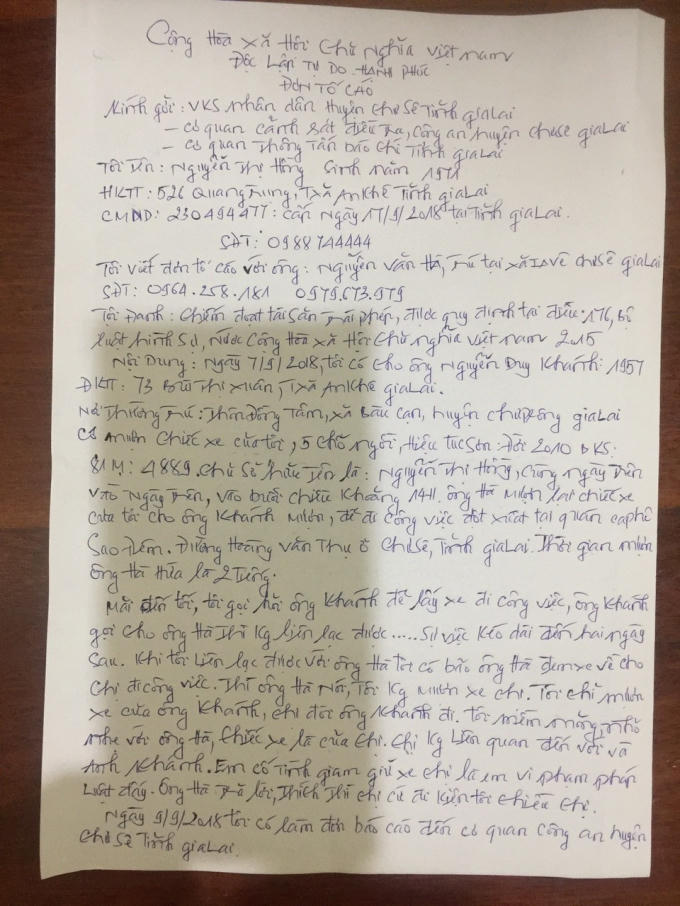 Cộng Hòa xã Hội Chủ Nghĩa Việt nam
Độc Lập Tự Do Hạnh Phúc
ĐƠN TỐ CÁO
Kính gởi: VKS nhân dân Huyện Chư Sê Tỉnh gia Lai
- Cơ quan cảnh sát điều tra, Công an huyện chư sê gia Lai
- Cơ quan Thông Tấn báo Chí Tỉnh gia Lai
Tôi Tên: Nguyễn Thị Hồng Sinh năm 1971
HKTT: 526 Quang Trung, TXã An Khê Tỉnh gia Lai
CMND: 230494477: Cấn Ngày 17/9/2018 tại Tỉnh gia Lai.
SĐT: 0988744444
Tôi viết đơn tố cáo với ông: Nguyễn văn Hà, Trú tại xã Iavê chư sê gia Lai
SĐT: 0964.258.181 0979.673.979
Tội Danh: Chiếm đoạt tài Sản Trái phép, được quy định tại điều: 176, Bộ
luật hình Sự, Nước Cộng Hòa xã Hội Chủ nghĩa việt nam 2015
Nội Dung: Ngày 7/9/2018, tôi có cho ông Nguyễn Duy Khánh: 1957
ĐKTT: 73 Bùi Thị Xuân, TXã An Khê gia Lai.
Nơi Thường Trú: Thôn Đồng Tâm, xã Bàu Cạn, huyện chưprông gia Lai
Có mượn Chiếc xe của tôi, 5 chỗ ngồi, Hiệu tucson: Đời 2010 BKS:
81M: 4889. Chủ Sở hữu Tên là: Nguyễn Thị Hồng, Cùng ngày Trên
vào Ngày Trên, vào buổi chiều khoảng 14H. ông Hà Mượn lại chiếc xe
của tôi cho ông Khánh Mượn, để đi công việc đột xuất tại quán caphê
Sao Đêm. Đường Hoàng văn Thụ ở Chư sê, Tỉnh gia Lai. Thời gian mượn
ông Hà Hứa là 2 Tiếng.
Mãi đến tối, tôi gọi hỏi ông Khánh để lấy xe đi công việc, ông Khánh
gọi cho ông Hà Thì Kg liên lạc được..... Sự việc kéo dài đến hai ngày
Sau. Khi tôi Liên lạc được với ông Hà tôi có bảo ông Hà đem xe về cho
Chị đi công việc. Thì ông Hà Nói, Tôi Kg Mượn xe chị. Tôi chỉ mượn
xe của ông Khánh, chị đòi ông Khánh đi. tôi mềm mỏng, nhỏ
nhẹ với ông Hà, Chiếc xe là của Chị. Chị Kg Liên quan đến với và
Anh Khánh. Em cố Tình giam giữ xe chị là em vi phạm pháp
Luật đấy. Ông Hà Trả lời, Thích Thì chị cứ đi kiện tôi chiều chị.
Ngày 9/9/2018 tôi có làm đơn báo cáo đến cơ quan Công an huyện
Chư Sê Tỉnh gia Lai.